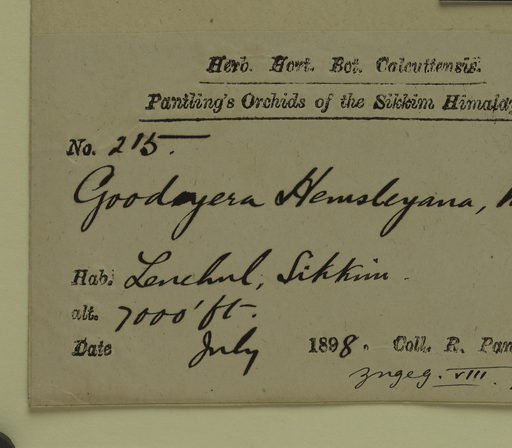 Herb. Hort. Bot. Calcuttensis.
Pantling's Orchids of the Sikkim Himala
No. 215.
Goodyera Hemsleyana,
Hab. Lenchul, Sikkim.
alt. 7000' ft.
Date July 1898. Coll. R. Pan
VIII.